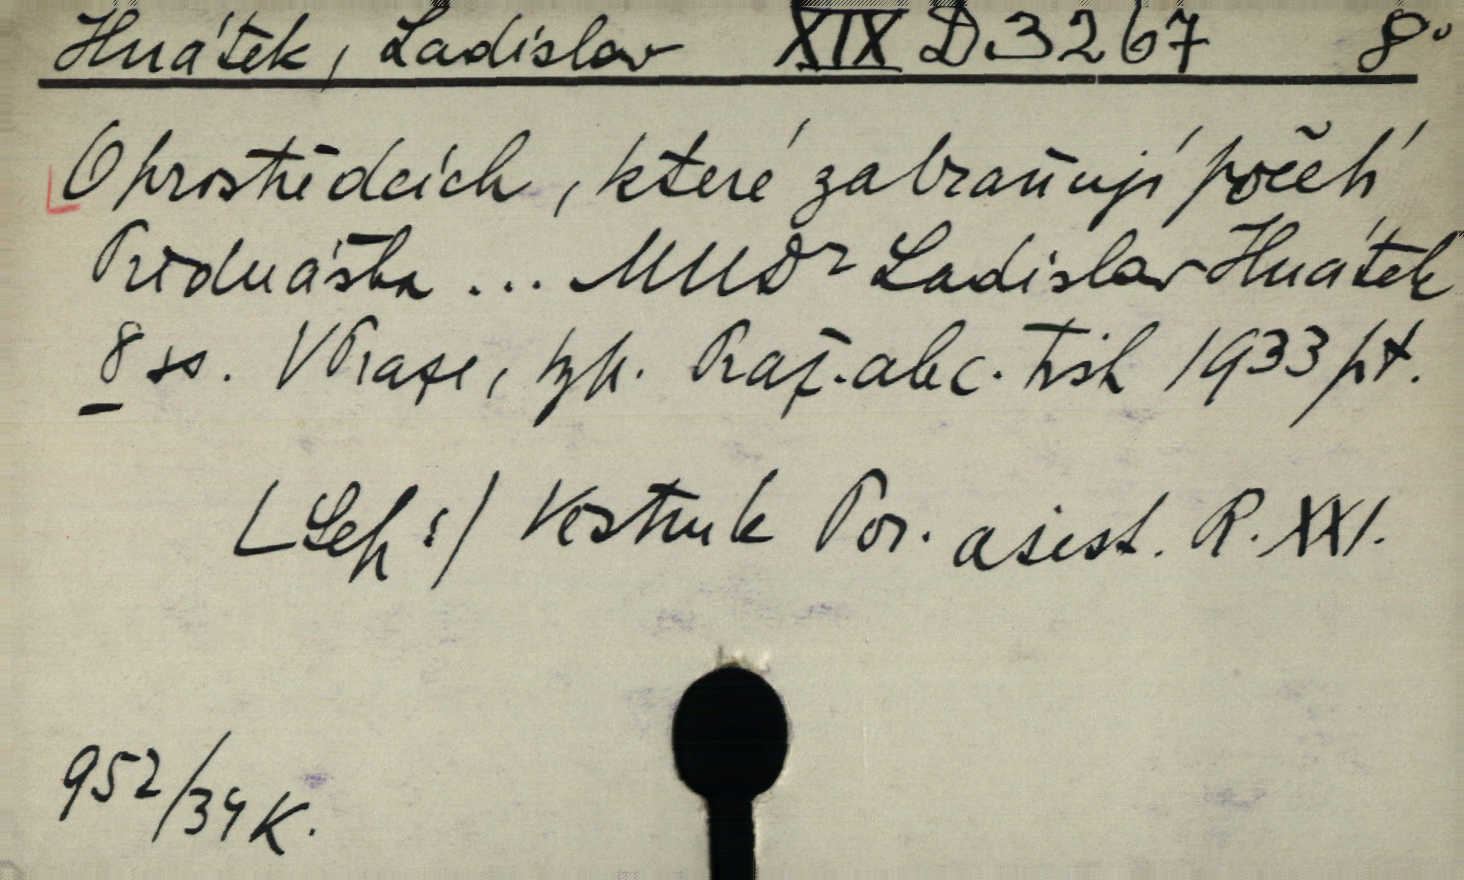 Hnátek, Ladislav XIX D 3267 8°
O prostředcích, které zabraňují početí
Přednáška ... MUDr Ladislav Hnátek
8 ss. V Praze, typ. Praž. akc. tisk 1933 pt.
[Sep:] Věstník Por. asist. R. XXI.
952/34 K.